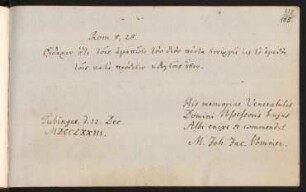 Rom 8, 28.
Οιδαμεν ὁτι τοις αγαπωσι τον θεον παντα συνεργει εις το αγαθον
τοις κατα προθεσιν κλητοις ουσιν.
Tubingae, d. 12. Dec.
MDCCLXXIII.
His memoriae Venerabilis
Domini Possessoris hujus
Albi enixe se commendat
M. Joh. Jac.